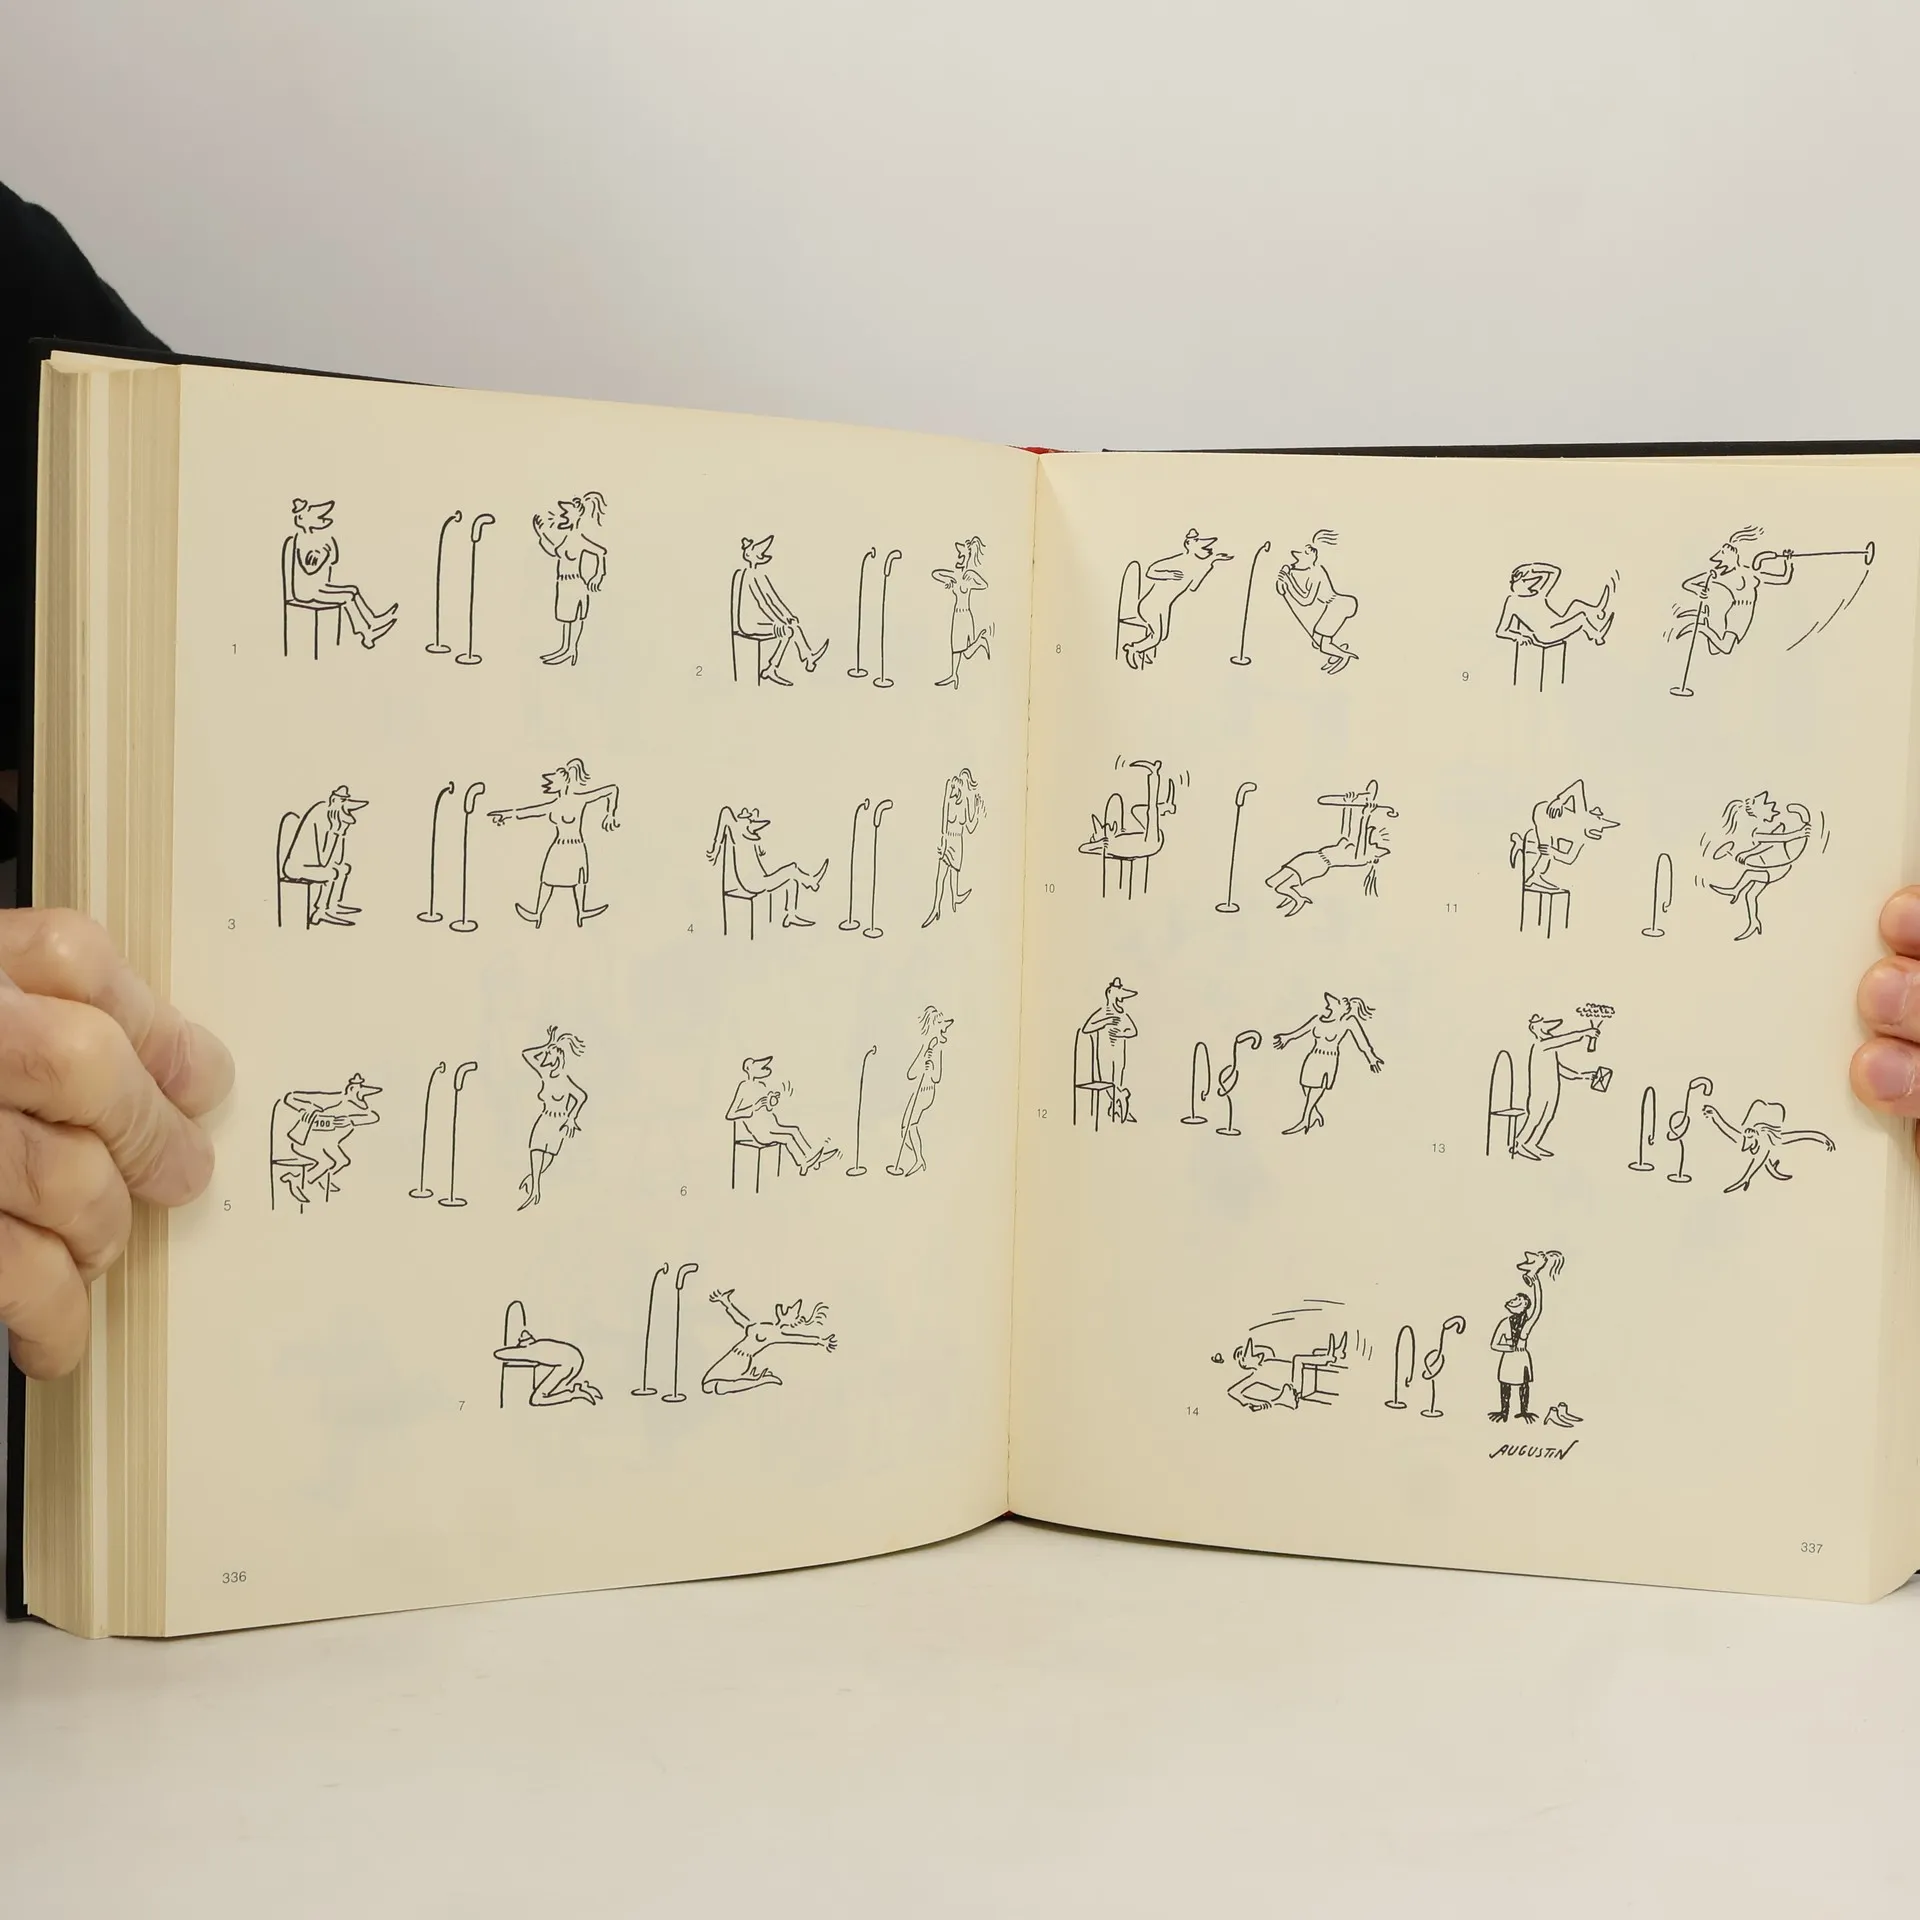 1
2
3
4
5
100
6
7
336
8
9
10
11
12
13
14
AUGUSTIN
337